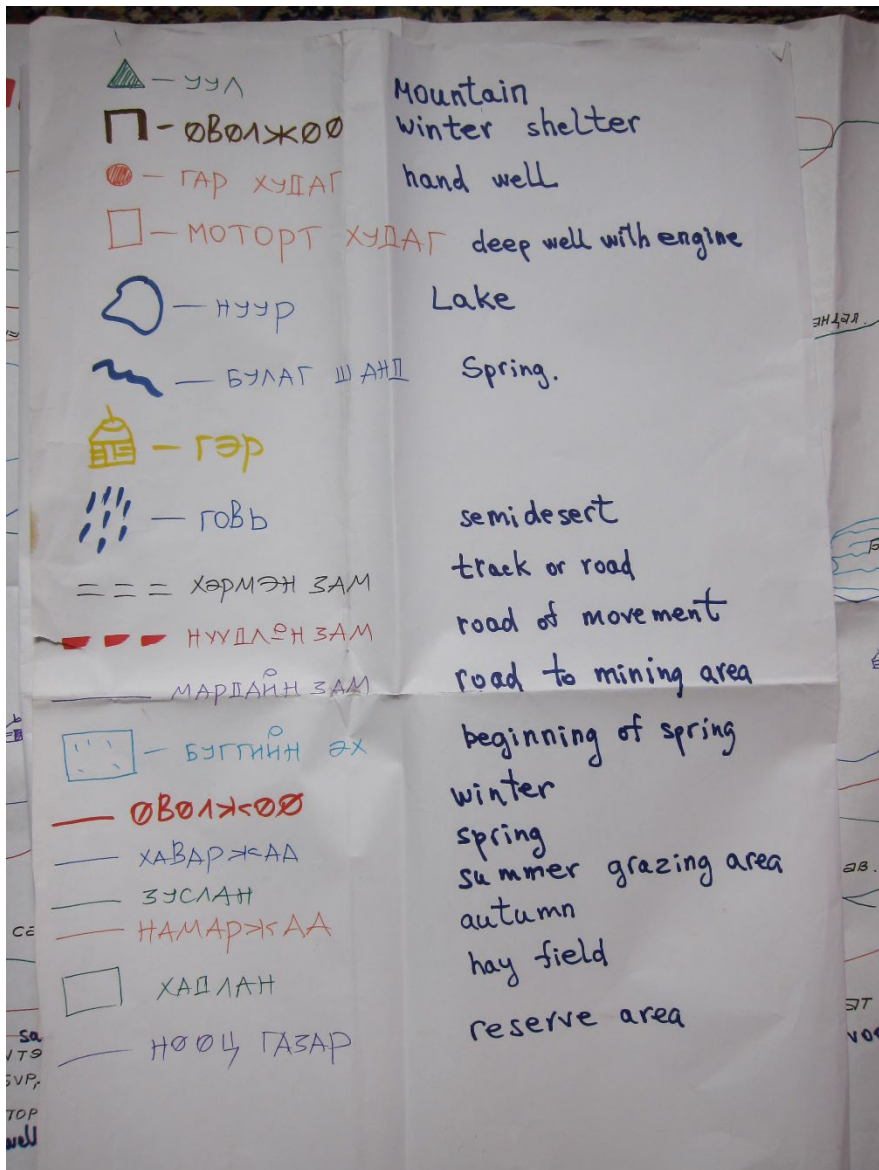 УУЛ Mountain
ӨВӨЛЖӨӨ winter shelter
ГАР ХУДАГ hand well
МОТОРТ ХУДАГ deep well with engine
НУУР Lake
БУЛАГ ШАНД Spring.
ГЭР
ГОВЬ semidesert
ХЭРМЭН ЗАМ track or road
НҮҮДЛИЙН ЗАМ road of movement
МАРДАЙН ЗАМ road to mining area
ЭХ beginning of spring
ӨВӨЛЖӨӨ winter
ХАВАРЖАА spring
ЗУСЛАН summer grazing area
НАМАРЖАА autumn
ХАДЛАН hay field
НӨӨЦ ГАЗАР reserve area
АВ.
ЭТ
sa
ТОР
well